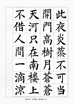 此夜炎蒸不可當
開門高樹月蒼蒼
天河只在南樓上
不借人間一滴涼